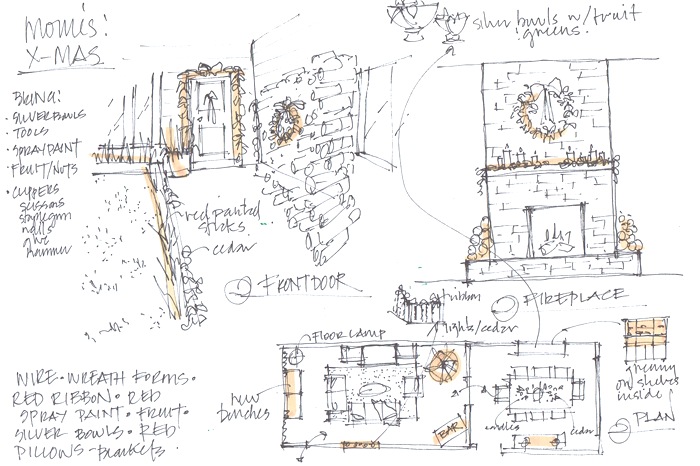 Mom's:
X-MAS
BRING:
• SILVER BOWLS
• TOOLS
• SPRAY PAINT
• FRUIT/NUTS
• CLIPPERS
scissors
staple gun
nails
glue
hammer
silver bowls w/ fruit
greens.
red painted
sticks
cedar
FRONT DOOR
FIREPLACE
ribbon
lights/cedar
FLOOR LAMP
new
benches
BAR
candles
cedar
greenery
on shelves
inside
PLAN
WIRE • WREATH FORMS •
RED RIBBON • RED
SPRAY PAINT • FRUIT •
SILVER BOWLS • RED
PILLOWS - blankets